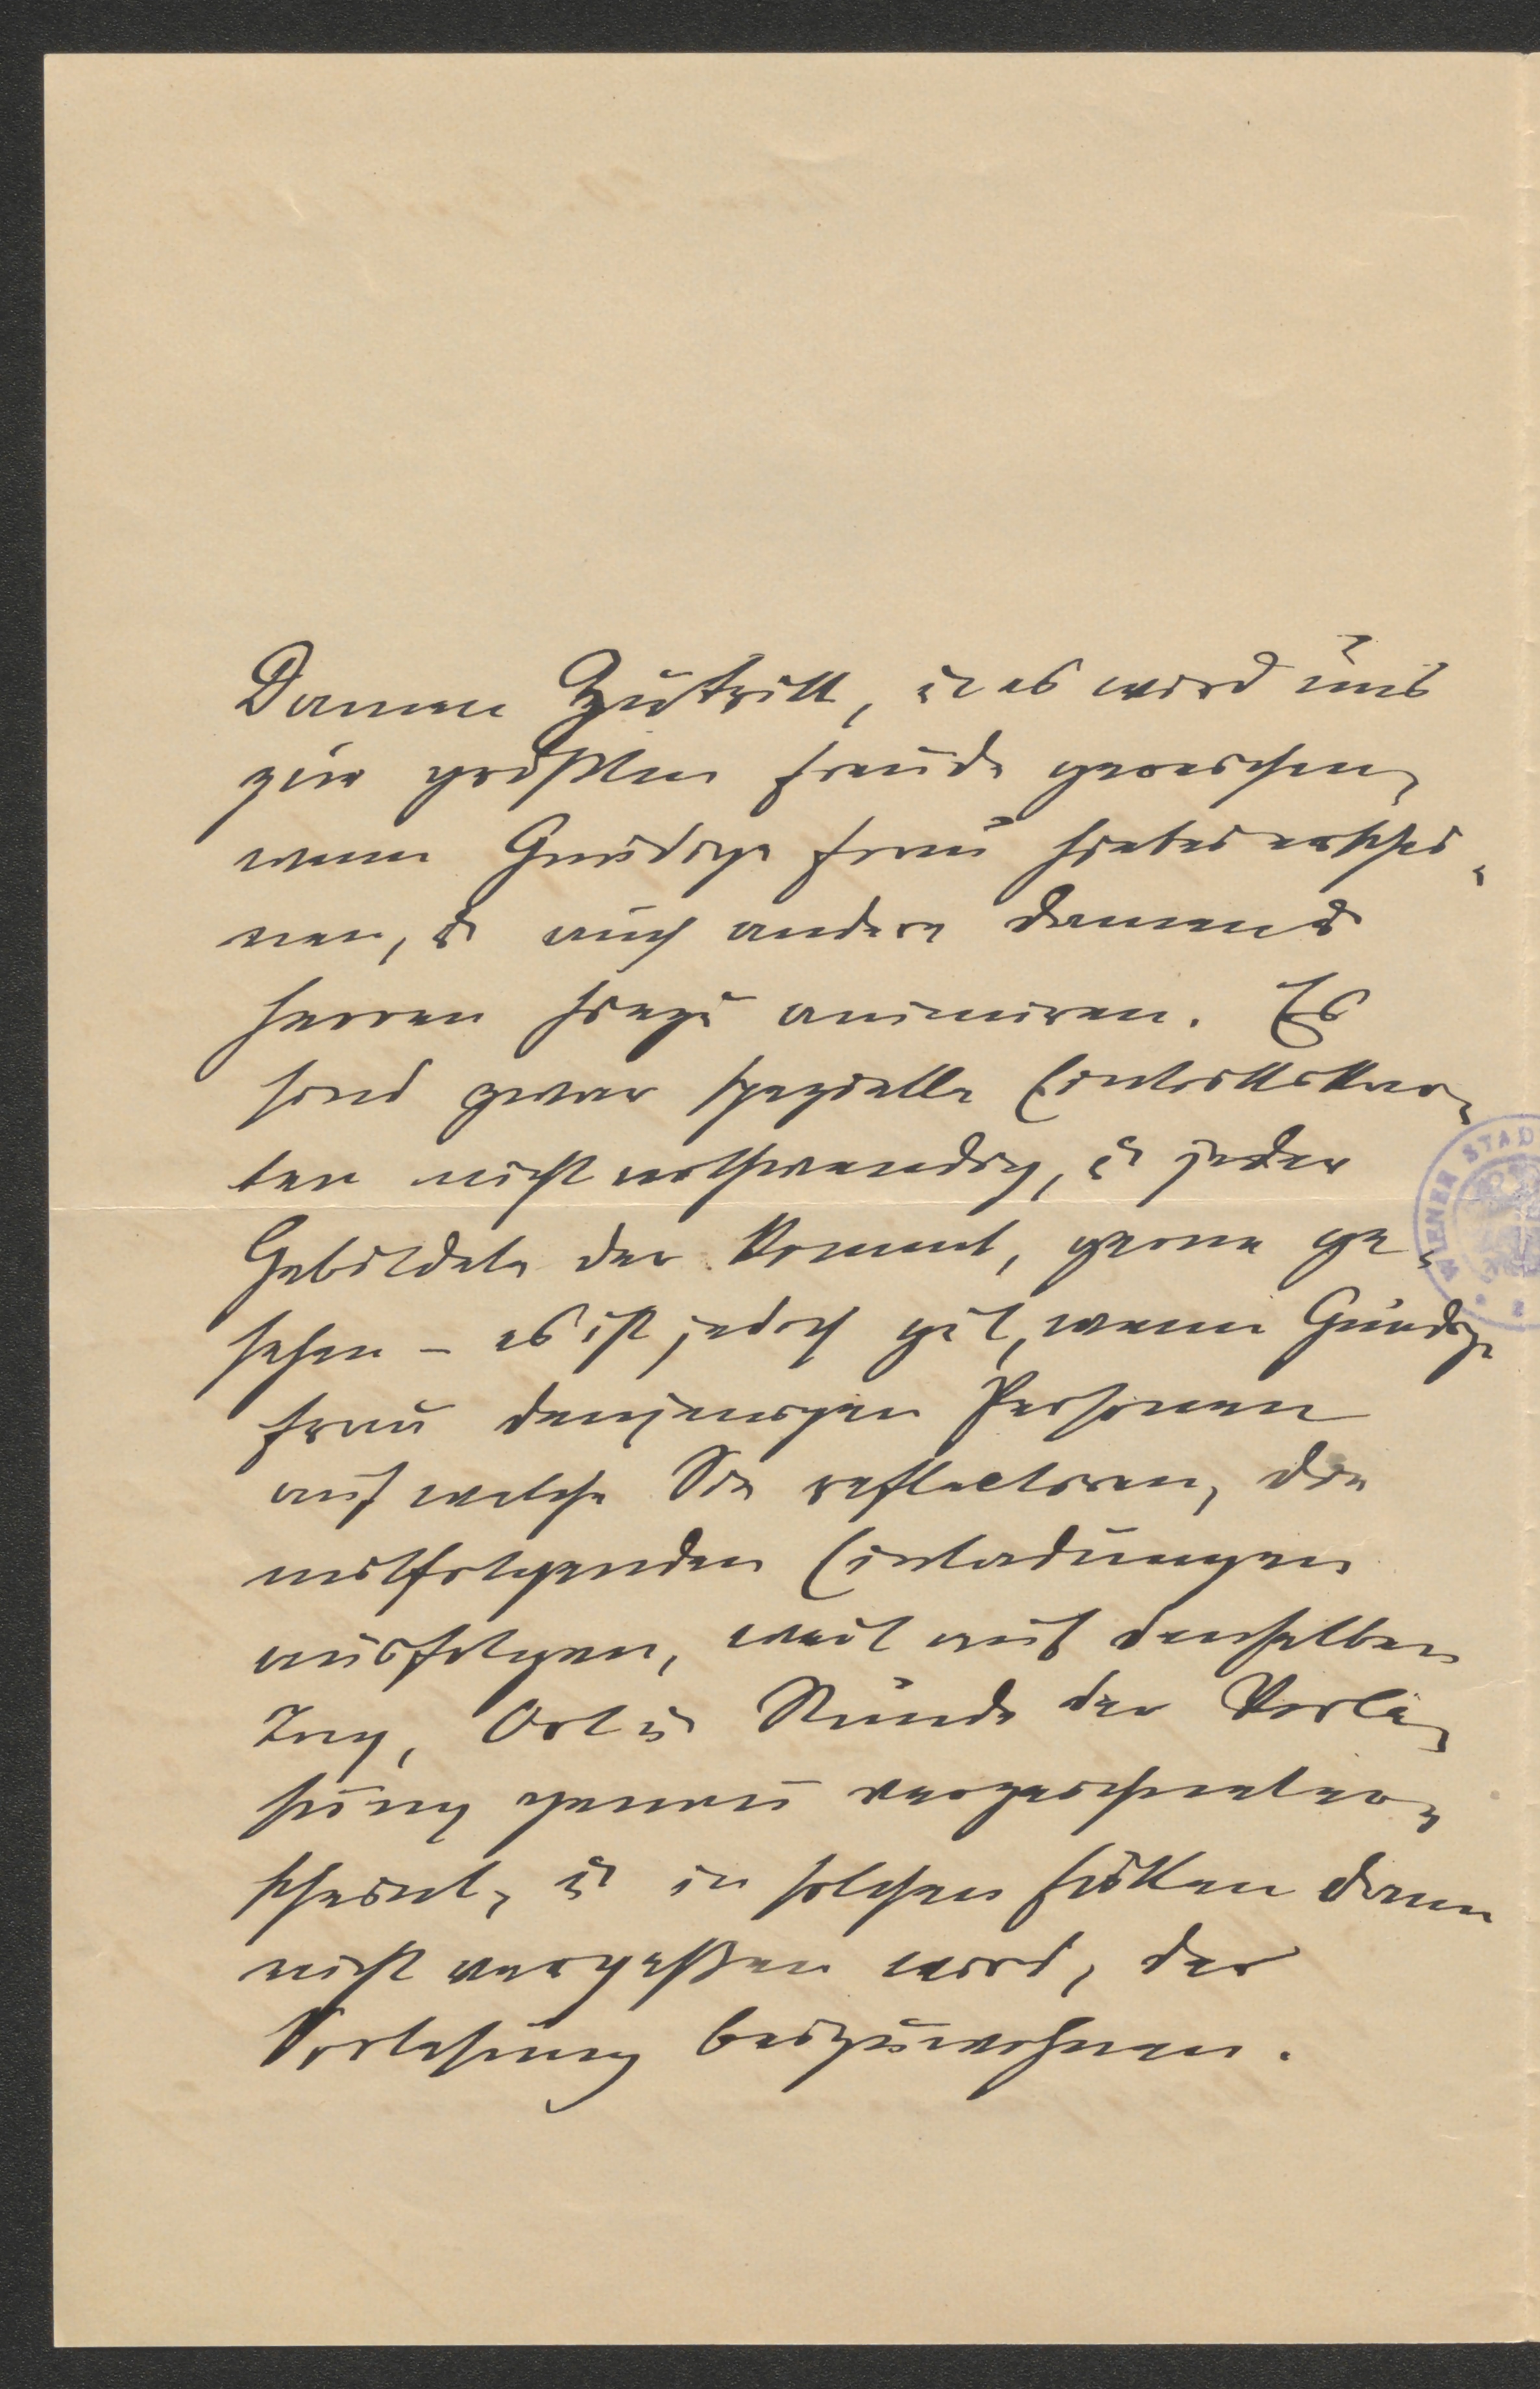 Damen Zutritt, u es wird uns
zur größten Freude gereichen,
wenn Gnädige Frau hiebei erschei-
nen, u auch andere Damen u
Herren hiezu animiren. Es
sind zwar spezielle Eintrittskar-
ten nicht nothwendig, u jeder
Gebildete der kommt, gerne ge-
sehen – es ist jedoch gut, wenn Gnädige
Frau denjenigen Personen
auf welche Sie reflectiren, die
mitfolgenden Einladungen
ausfolgen, weil auf denselben
Tag, Ort u Stunde der Vorle-
sung genau
scheint, u in solchen Fällen dann
nicht vergeßen wird, der
Vorlesung beizuwohnen.
WIENER STAD